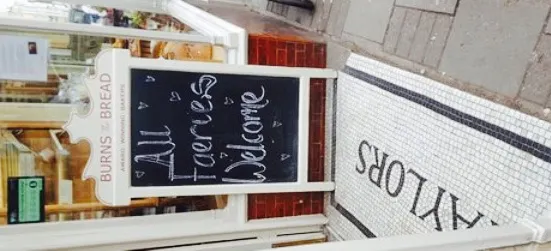 BURNS THE BREAD
AWARD WINNING BAKERS
All
Faeries
Welcome
TAYLORS